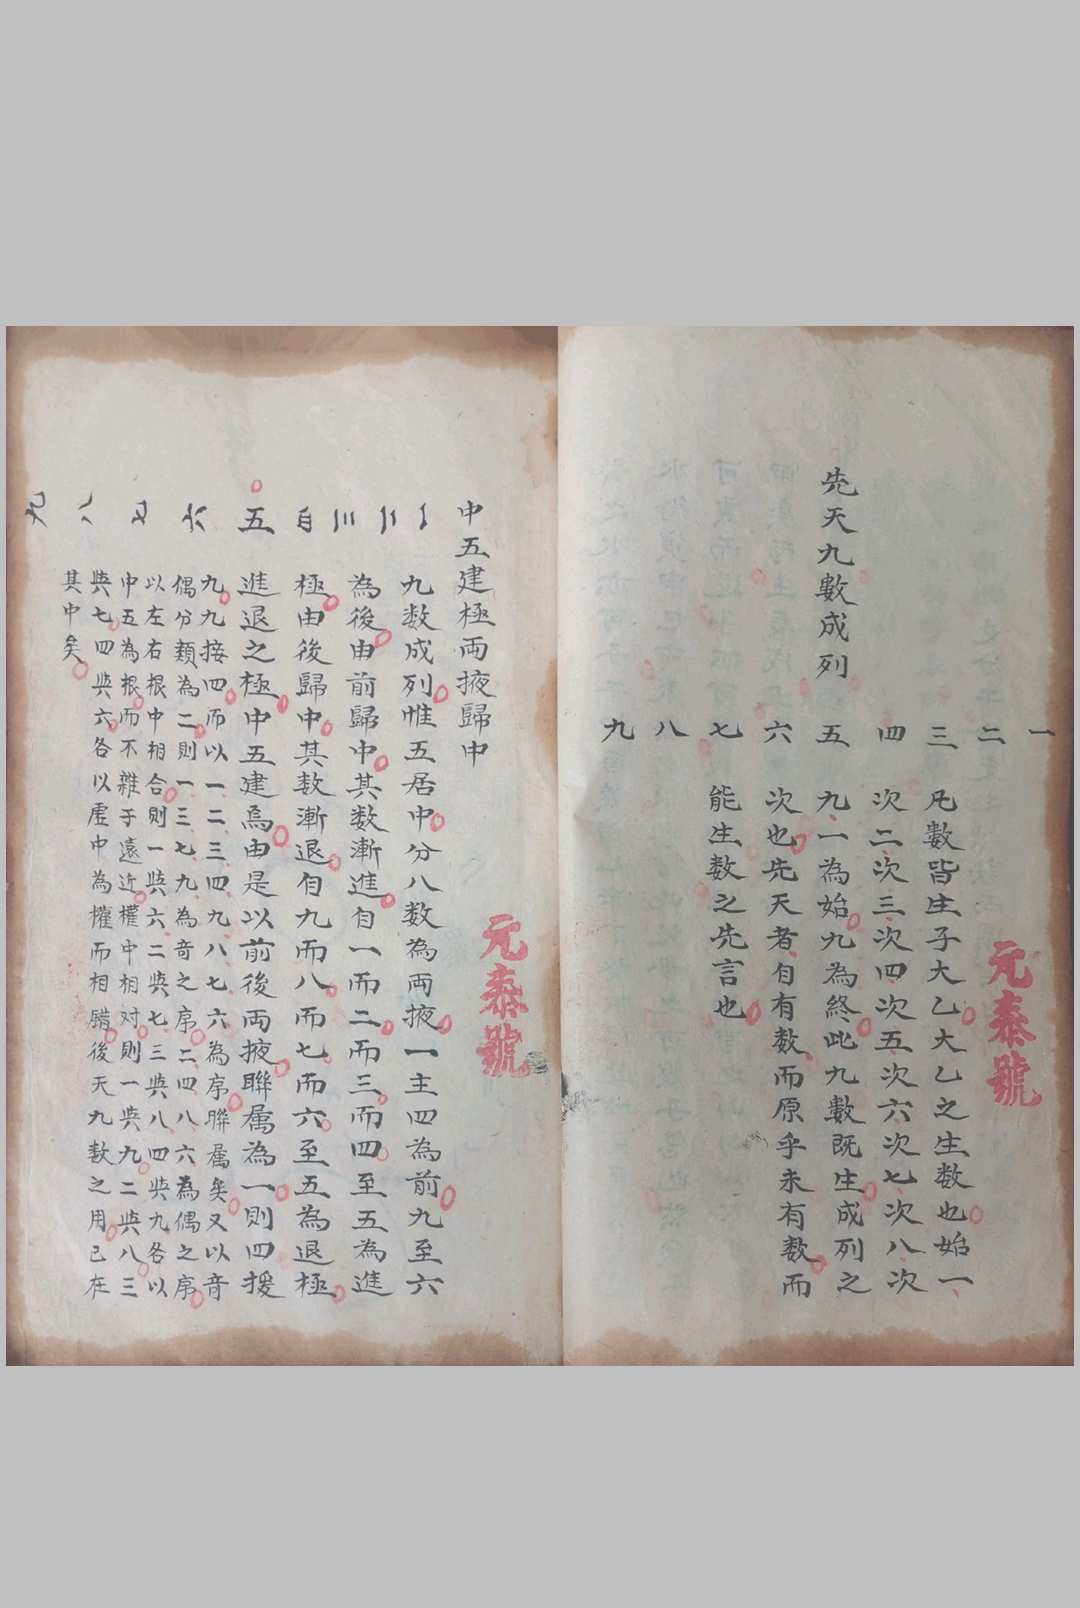 先天九數成列
一
二
三
四
五
六
七
八
九
凡數皆生于大乙大乙之生数也始一
次二次三次四次五次六次七次八次
九一為始九為終此九數既生成列之
次也先天者自有数而原乎未有数而
能生数之先言也
元泰號
中五建極両掖歸中
五
九数成列惟五居中分八数為両掖一主四為前九至六
為後由前歸中其数漸進自一而二而三而四至五為進
極由後歸中其数漸退自九而八而七而六至五為退極
進退之極中五建焉由是以前後両掖聨属為一則四援
九九接四而以一二三四九八七六為序聨属矣又以竒
偶分類為二則一三七九為竒之序二四八六為偶之序
以左右根中相合則一與六二與七三與八四與九各以
中五為根而不雜于遠近權中相对則一與九二與八三
與七四與六各以虚中為權而相錯後天九数之用已在
其中矣
元泰號